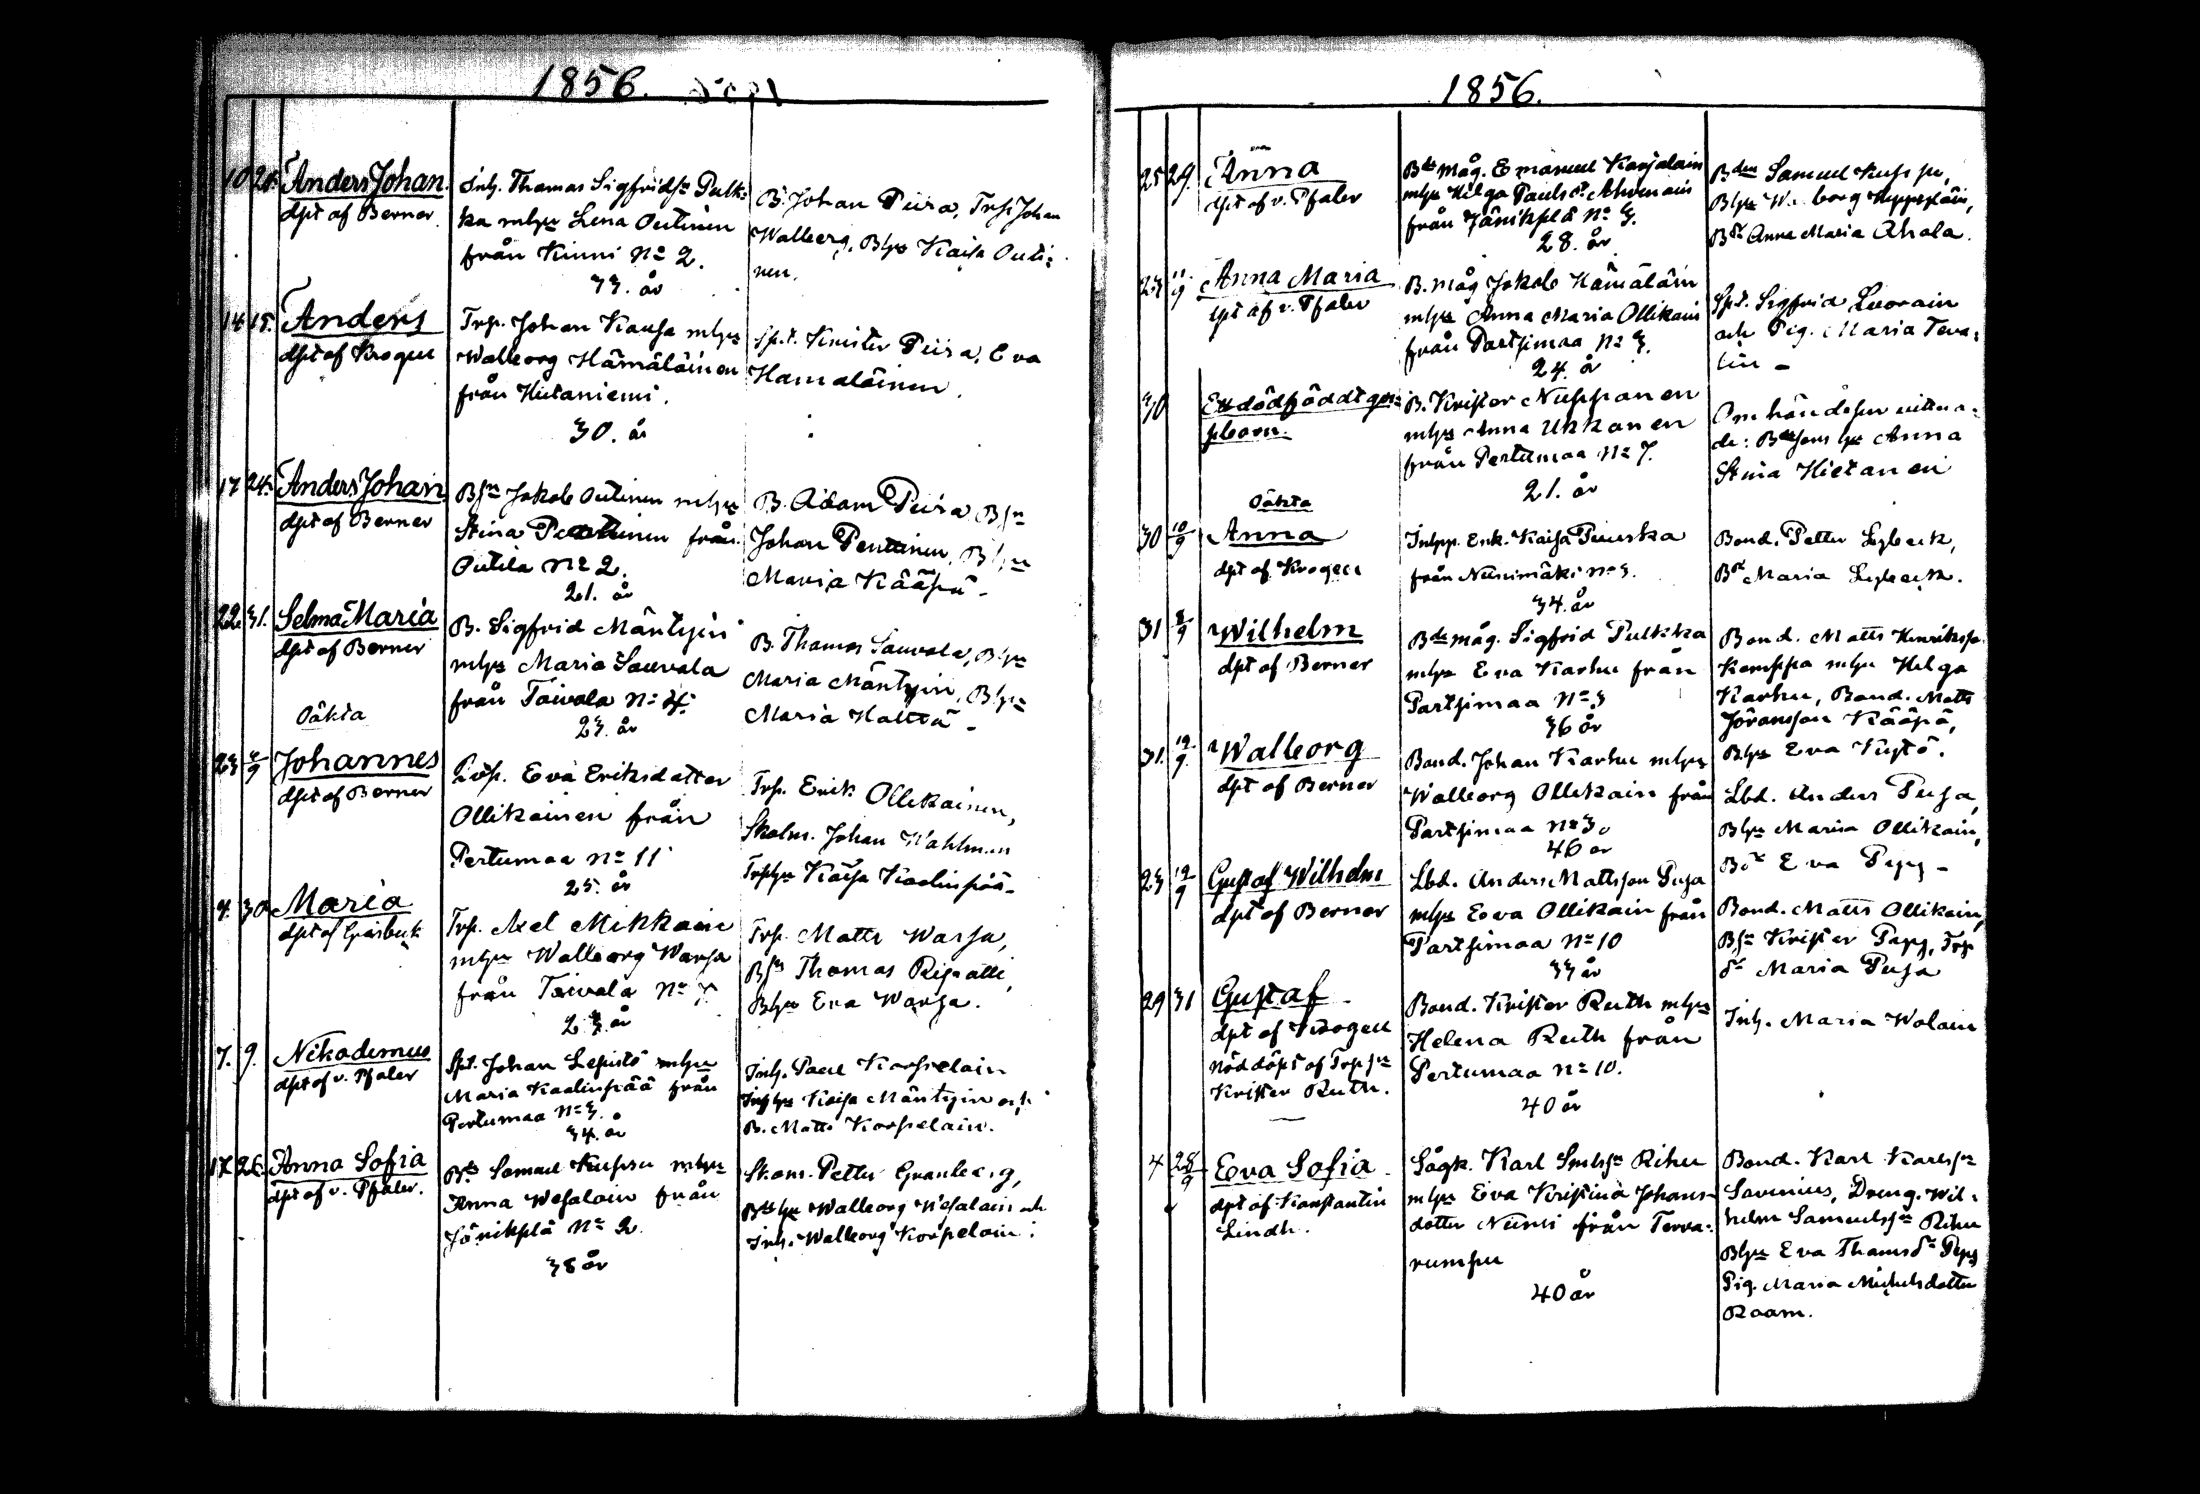 1856.
10 20. Anders Johan.
dpt af Berner
Inh. Thomas Sigfridsn Pulk:
ka mhju Lena Outinen
från Kinni No 2.
33. år
B. Johan Piira, Trp Johan
Walborg, Bhju Kaisa Outi:
nen.
14 15. Anders
dpt af Krogell
Trp. Johan Kausa mhju
Walborg Hämäläinen
från Hietaniemi.
30. år
Spt. Krister Piira, Eva
Hämäläinen.
17 24. Anders Johan
dpt af Berner
Bsn Jakob Outinen mhju
Stina Penttinen från
Outila No 2.
21. år
B. Adam Piira Bsn
Johan Penttinen, Bhju
Maria Kääpä -
22. 31. Selma Maria
dpt af Berner
B. Sigfrid Mäntyin
mhju Maria Sauvala
från Toivola No 4.
23. år
B. Thomas Sauvala, Bhju
Maria Mäntyin, Bhju
Maria Halttu -
Oäkta
23 Johannes
dpt af Berner
Eva Eriksdotter
Ollikainen från
Pertumaa No 11
25. år
Trp. Erik Ollikainen,
Skolm. Johan Wahlman
Trphju Kaisa Kaalinpää -
4. 30. Maria
dpt af
Trp. Axel Mikkain
mhju Walborg Warsa
från Toivola No 7.
23. år
Trp. Matts Warsa,
Bsn Thomas Risatti,
Bhju Eva Warsa.
7. 9. Nikodemus
dpt af v. Pfaler
Spt. Johan Lepistö mhju
Maria Kaalinpää från
Pertumaa No 3.
34. år
Inh. Paul Korpelain
Inhju Kaisa Mäntyin och
B. Matts Korpelain.
17. 26. Anna Sofia
dpt af v. Pfaler.
Bde Samuel Kuhssu mhju
Anna Wesalain från
Jänikplä No 2.
38 år
Skom. Petter Granberg,
Bdehju Walborg Wesalain och
Inh. Walborg Korpelain.
1856.
25 29. Anna
dpt af v. Pfaler
Bde måg. Emanuel Karjalain
mhju Helga Paulsdr Ahonain
från Jänikplä No 3.
28. år
Bden Samuel Kuhssu,
Bhju Walborg
Bdr Anna Maria Ahola.
23 11/9 Anna Maria
dpt af v. Pfaler
B. måg Jakob Hämäläin
mhju Anna Maria Ollikain
från Partsimaa No 3.
24. år
Spt. Sigfrid Luorain
och Pig. Maria Teva:
lin -
30 Ett dödfödt gos:
sebarn.
B. Krister Nuppanen
mhju Anna Ukkonen
från Pertumaa No 7.
21. år
Om händelsen vittna:
de: Anna
Stina Hietanen
Oäkta
30 10/9 Anna
dpt af Krogell
Inhp. Enk. Kaisa Piuska
från Niinimäki No 3.
34. år
Bond. Petter Lybeck,
Bdr Maria Lybeck.
31 8/9 Wilhelm
dpt af Berner
Bde måg. Sigfrid Pulkka
mhju Eva Karhu från
Partsimaa No 3
36 år
Bond. Matts Henrikssn
Kemppa mhju Helga
Karhu, Bond. Matts
Jöransson Kääpä,
Bhju Eva Kytö.
31. 12/9. Walborg
dpt af Berner
Bond. Johan Karhu mhju
Walborg Ollikain från
Partsimaa No 3.
46 år
Lbd. Anders Pusa,
Bhju Maria Ollikain,
Bdr Eva Pepp -
23 12/9 Gustaf Wilhelm
dpt af Berner
Lbd. Anders Mattsson Pusa
mhju Eva Ollikain från
Partsimaa No 10
33 år
Bond. Matts Ollikain,
Bsn Krister Pepp, Trp
dr Maria Pusa
29 31 Gustaf
dpt af Krogell
nöddöpt af Trpsn
Krister Ruth.
Bond. Krister Ruth mhju
Helena Ruth från
Pertumaa No 10.
40 år
Inh. Maria Wolain
4 28/9 Eva Sofia
dpt af Konstantin
Lindh.
Sågk. Karl Smlsn Rihu
mhju Eva Kristina Johans
dotter Niemi från Terva:
rumpu
40 år
Bond. Karl Karlsn
Savenius, Dreng. Wil:
helm Samuelsn Rihu
Bhju Eva Thomsdr Pepp
Pig. Maria Michelsdotter
Raam.